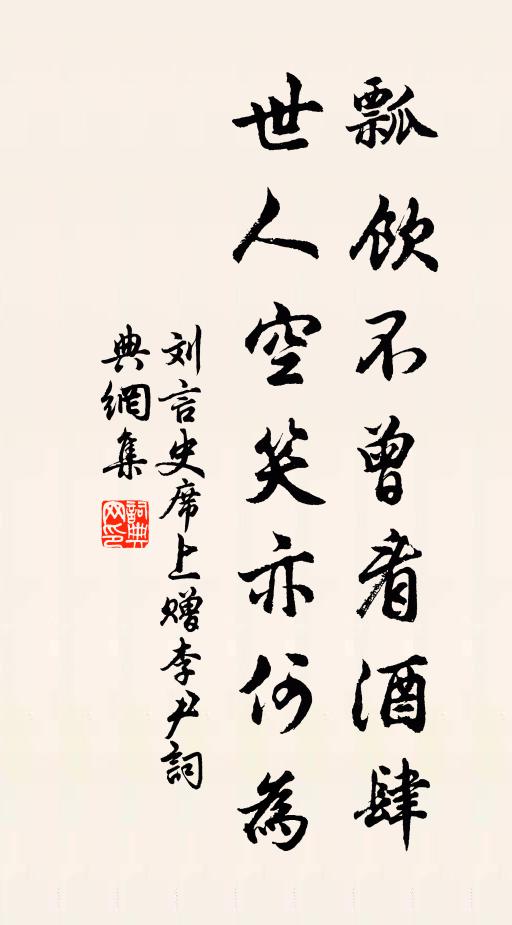 瓢飲不曾看酒肆
世人空笑亦何為
刘言史席上贈李尹詞
典網集
詞典网印